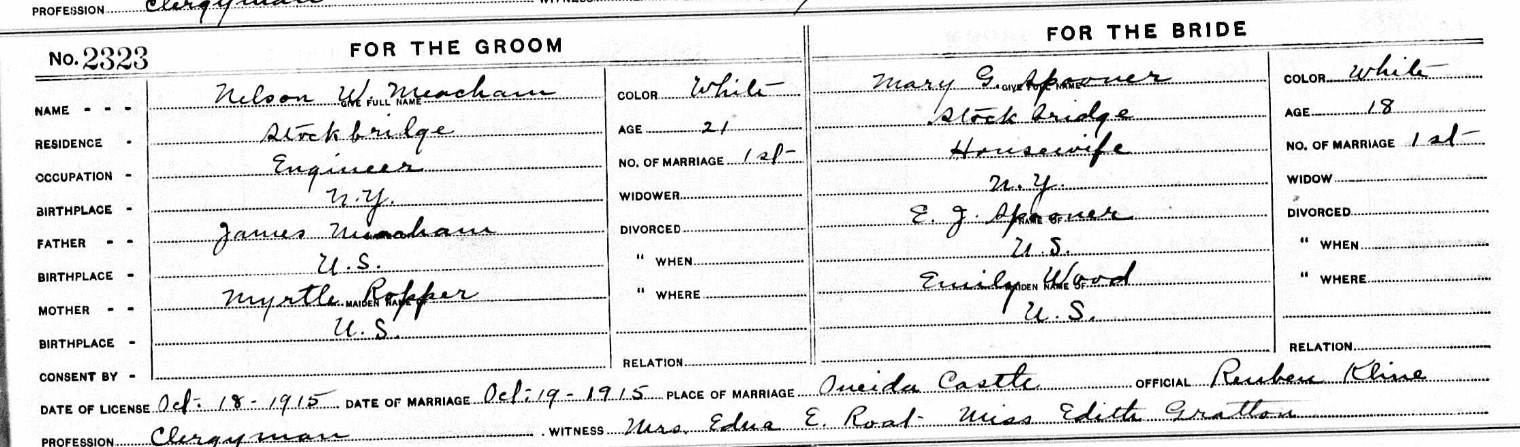 PROFESSION Clergyman WITNESS
No. 2323 FOR THE GROOM FOR THE BRIDE
NAME - - - Nelson W. Meacham GIVE FULL NAME COLOR White Mary G. Spooner GIVE FULL NAME COLOR White
RESIDENCE - Stockbridge AGE 21 Stock bridge AGE 18
OCCUPATION - Engineer NO. OF MARRIAGE 1st Housewife NO. OF MARRIAGE 1st
BIRTHPLACE - N.Y. WIDOWER N.Y. WIDOW
FATHER - - James Meacham DIVORCED E. J. Spooner NAME OF DIVORCED
BIRTHPLACE - U.S. " WHEN U.S. " WHEN
MOTHER - - Myrtle Ropper MAIDEN NAME " WHERE Emily Wood MAIDEN NAME OF " WHERE
BIRTHPLACE - U.S. U.S.
CONSENT BY - RELATION RELATION
DATE OF LICENSE Oct. 18-1915 DATE OF MARRIAGE Oct. 19-1915 PLACE OF MARRIAGE Oneida Castle OFFICIAL Reuben Kline
PROFESSION Clergyman WITNESS Mrs. Edna E. Roat - Miss Edith Gratton